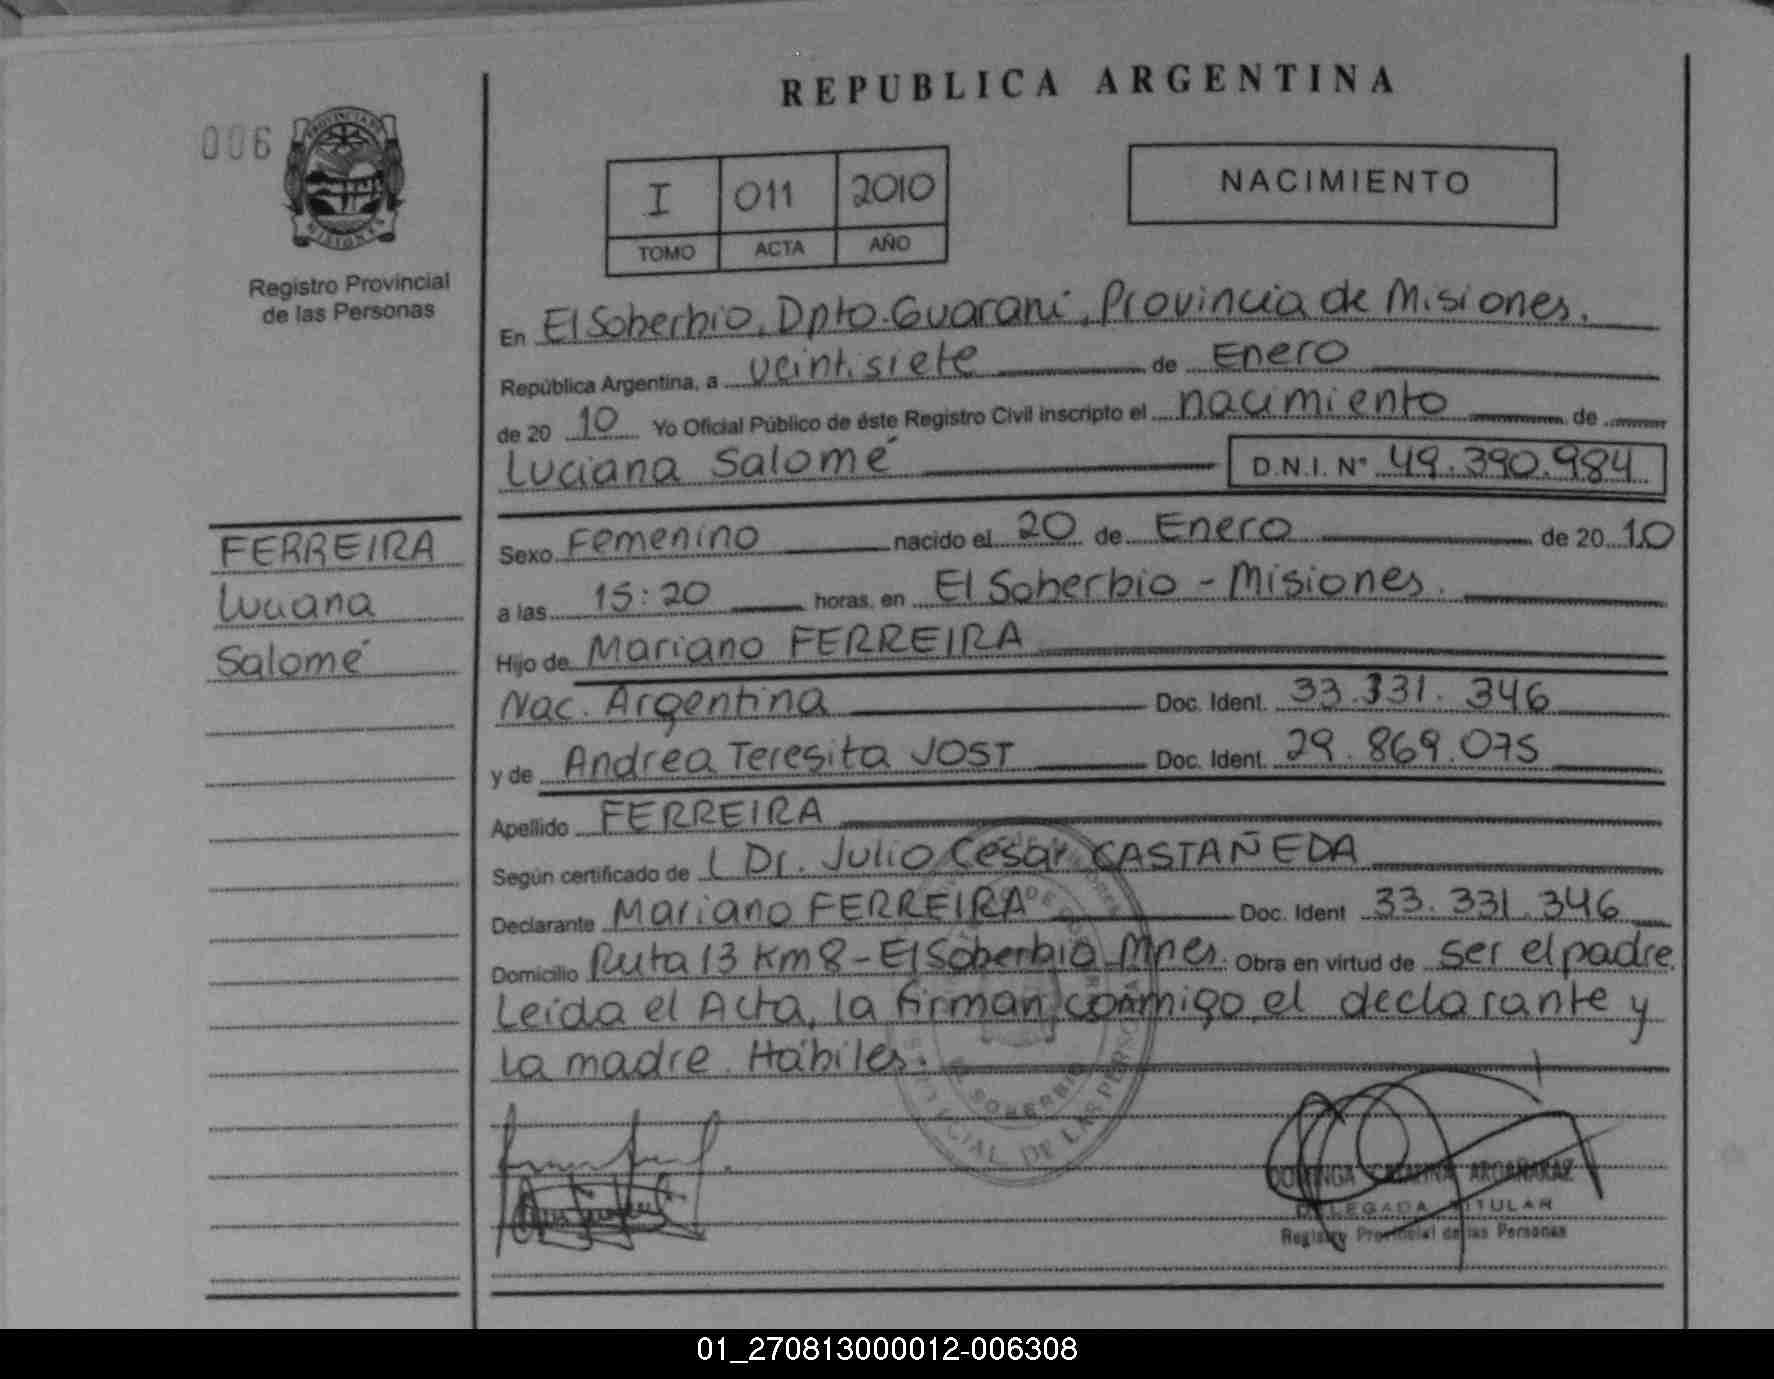 REPUBLICA ARGENTINA
006
PROVINCIA DE
MISIONES
Registro Provincial
de las Personas
I 011 2010
TOMO ACTA AÑO
NACIMIENTO
En El Soberbio, Dpto. Guaraní, Provincia de Misiones.
República Argentina, a veintisiete de Enero
de 20 10 Yo Oficial Público de éste Registro Civil inscripto el nacimiento de
Luciana Salomé D.N.I. Nº 49.390.984
FERREIRA
Luciana
Salomé
Sexo Femenino nacido el 20 de Enero de 20 10
a las 15:20 horas, en El Soberbio - Misiones.
Hijo de Mariano FERREIRA
Nac. Argentina Doc. Ident. 33.331.346
y de Andrea Teresita JOST Doc. Ident. 29.869.075
Apellido FERREIRA
Según certificado de l Dr. Julio César CASTAÑEDA
Declarante Mariano FERREIRA Doc. Ident 33.331.346
Domicilio Ruta 13 Km 8 - El Soberbio Mnes. Obra en virtud de ser el padre.
Leída el Acta, la firman conmigo el declarante y
la madre. Hábiles.
SOBERBIO
DE LAS PERSONAS
DOMINGA CATALINA ARGAÑARAZ
DELEGADA TITULAR
Registro Provincial de las Personas
01_270813000012-006308